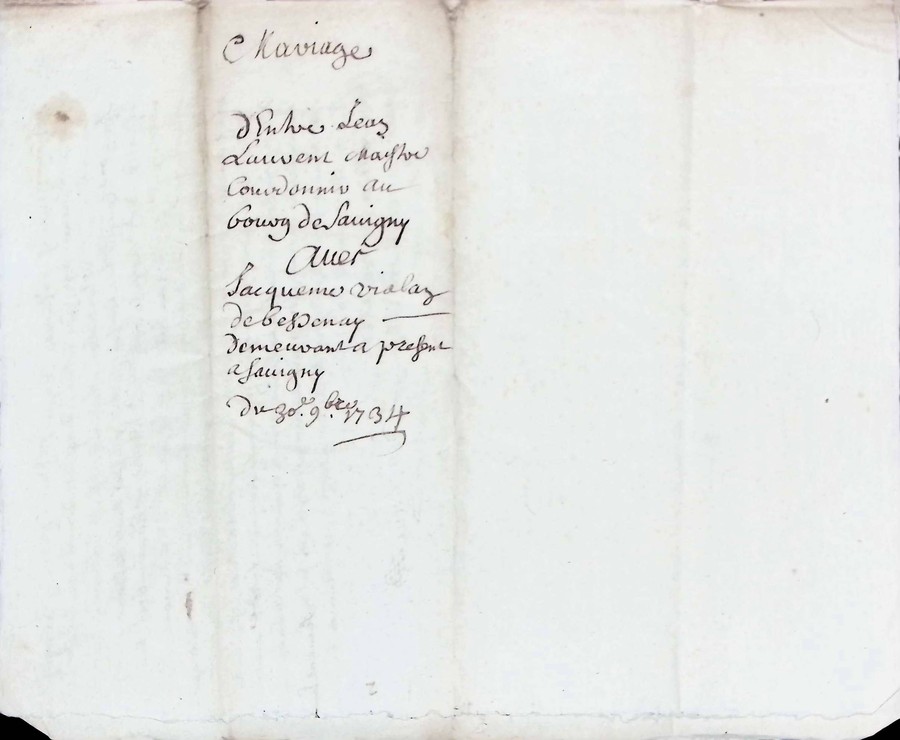 Mariage
d'Entre Jean
Laurent Maistre
Courdonnir au
bourg de Savigny
Avec
Jacqueme Violay
de bessenay
demeurant a present
a Savigny
Du 30e. 9bre 1734